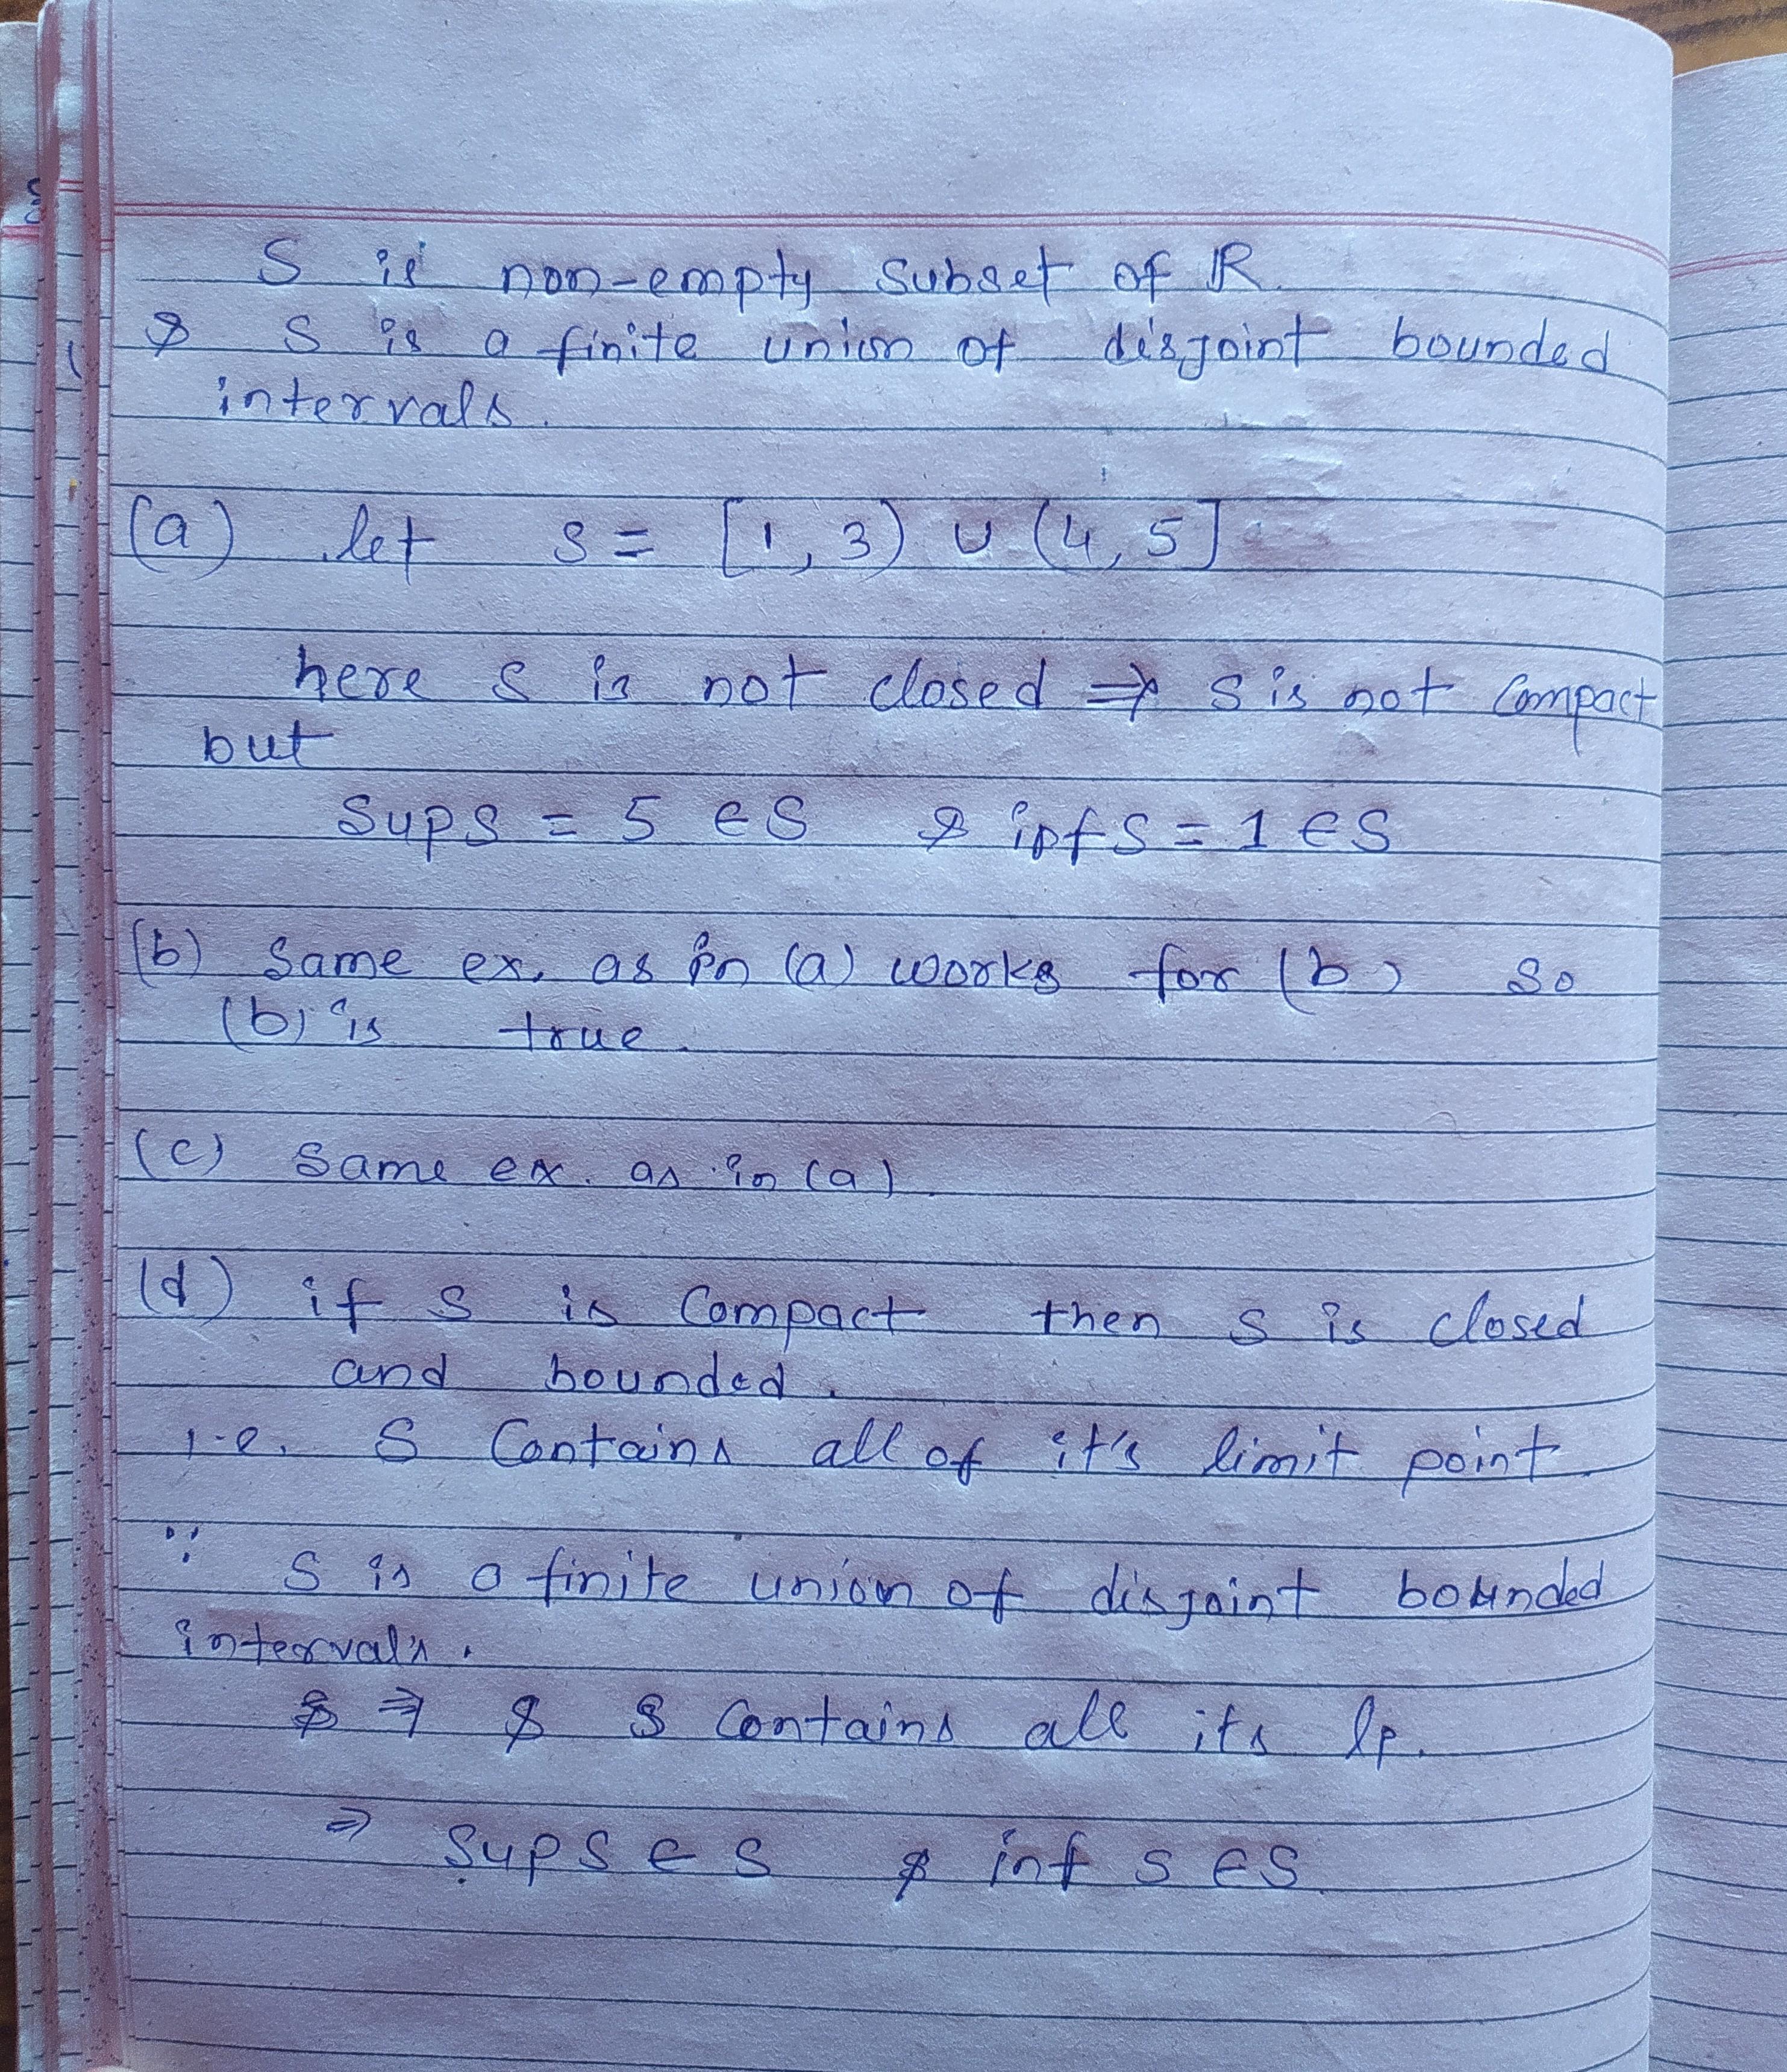 S is non-empty subset of ℝ.
& S is a finite union of disjoint bounded
intervals.
(a) let S = [1, 3) ∪ (4, 5]
here S is not closed ⇒ S is not Compact
but
Sup S = 5 ∈ S & inf S = 1 ∈ S
(b) Same ex. as in (a) works for (b) so
(b) is true.
(c) Same ex. as in (a).
(d) if S is Compact then S is closed
and bounded.
i.e. S Contains all of it's limit point.
∵ S is a finite union of disjoint bounded
intervals.
⇒ S Contains all its lp.
⇒ Sup S ∈ S & inf S ∈ S.